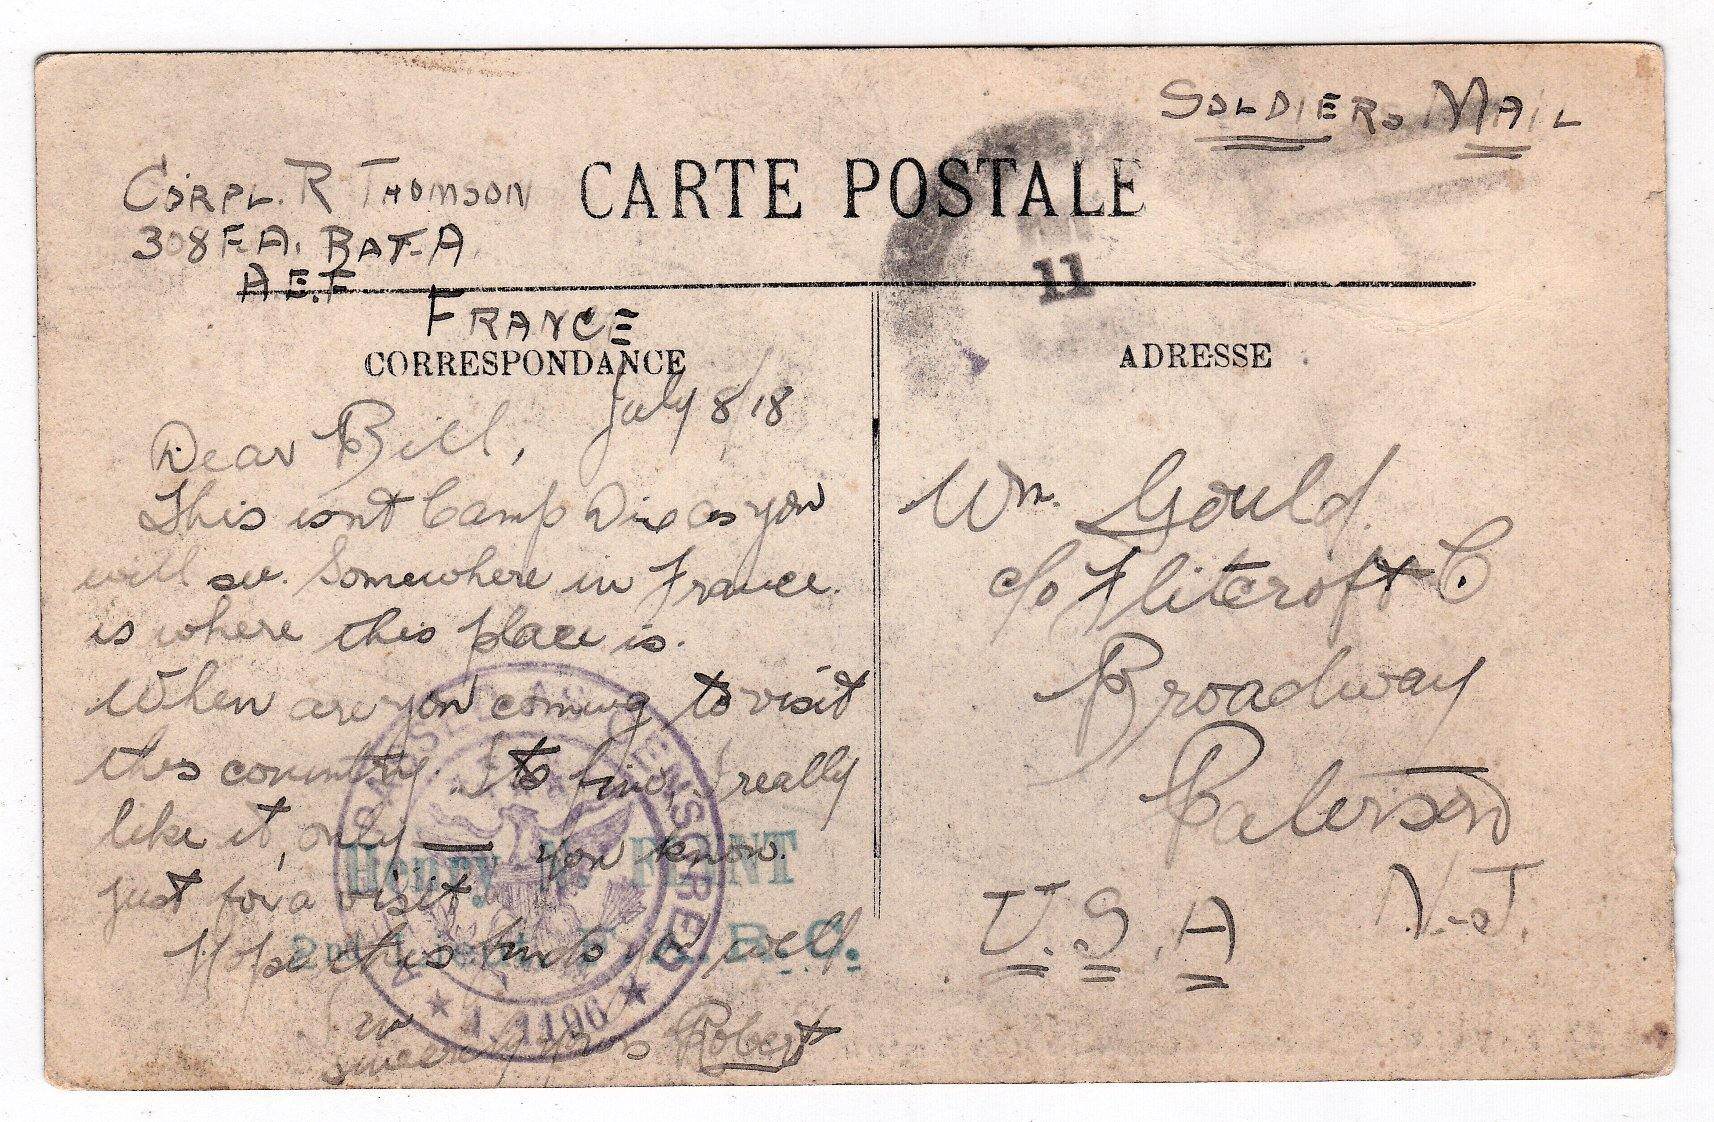 SOLDIERS MAIL
CORPL. R THOMSON
308 F.A. BAT-A
A.E.F
FRANCE
CARTE POSTALE
11
CORRESPONDANCE
ADRESSE
July 8/18
Dear Bill,
This isnt Camp Dix as you
will see. Somewhere in France.
is where this place is.
When are you coming to visit
this country. Its fine, I really
like it, only — you know.
just for a visit
Hope this finds you well
im
sincerely yours Robert
Wm. Gould.
c/o Flitcroft C
Broadway
Paterson
N-J.
U.S.A
PASSED AS CENSORED
A.1196
Henry FLINT
2nd F.A.R.C.